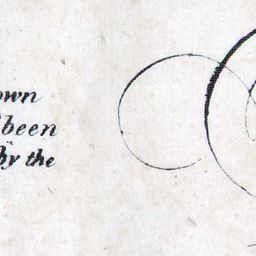 own
been
by the